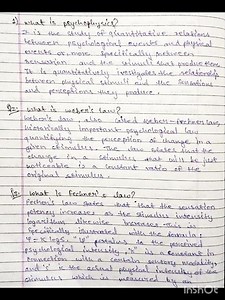 2) What is psychophysics?
It is the study of quantitative relations
between psychological events and physical
events or more specifically between
sensation and the stimuli that produce them.
It is quantitatively investigates the relationship
between physical stimuli and the sensations
and perceptions they produce.
Q2: What is weber's law?
Weber's law, also called weber-fechner law,
historically important psychological law
quantifying the perception of change in a
given stimulus. The law states that the
change in a stimulus that will be just
noticeable is a constant ratio of the
original stimulus.
Q3: What is Fechner's law?
Fechner's law states that that the sensation
increase as the stimulus intensity
logarithm increases. This is
specifically illustrated with the formula:
logs, pertains to the perceived
psychological intensity, is a constant in
connection with a certain sensory modality
and 's' is the actual physical intensity of the
stimulus which is measured by an